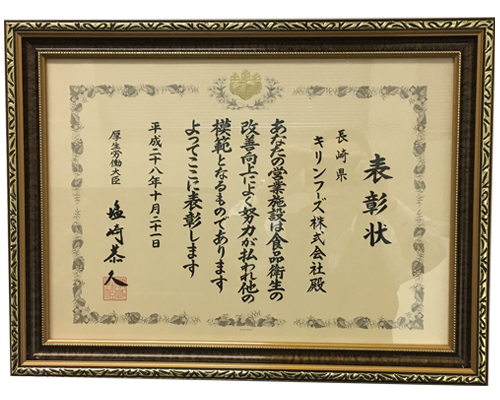 表彰状
長崎県
キリンフーズ株式会社殿
あなたの営業施設は食品衛生の
改善向上によく努力が払われ他の
模範となるものであります
よってここに表彰します
平成二十八年十月二十一日
厚生労働大臣
塩崎恭久